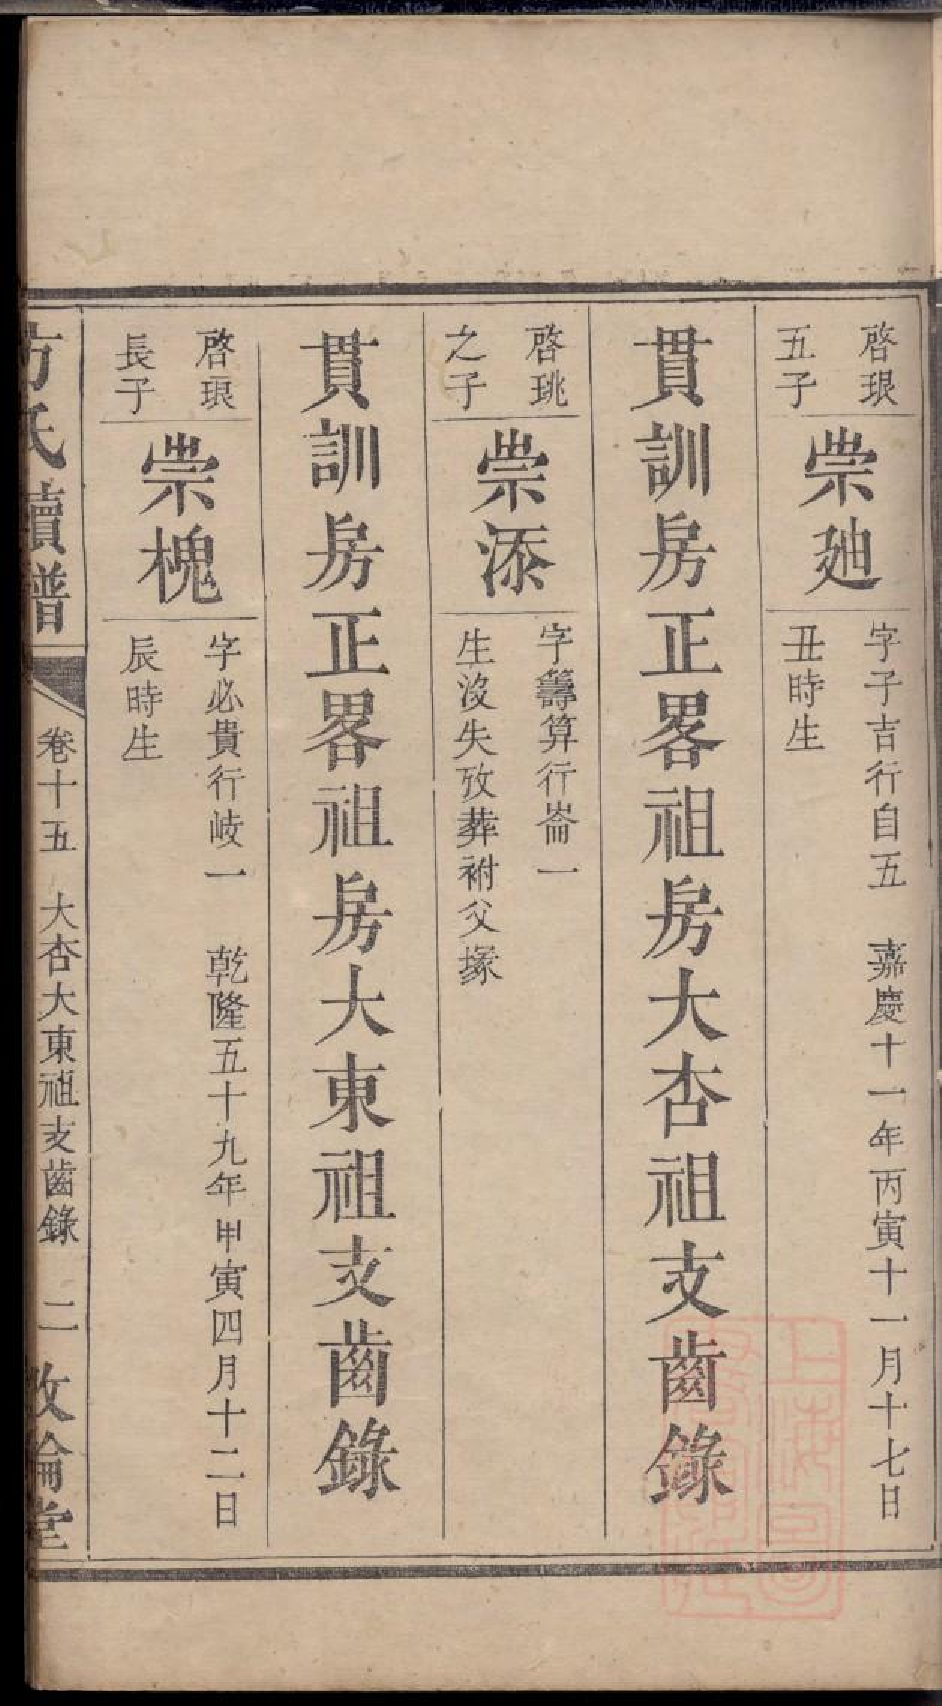 啓珢
五子
崇廸
字子吉行自五 嘉慶十一年丙寅十一月十七日
丑時生
貫訓房正畧祖房大杏祖支齒錄
啓珧
之子
崇添
字籌算行崙一
生沒失攷葬祔父塚
貫訓房正畧祖房大東祖支齒錄
啓珢
長子
崇槐
字必貴行岐一 乾隆五十九年甲寅四月十二日
辰時生
方氏續譜
卷十五 大杏大東祖支齒錄 二 攸倫堂